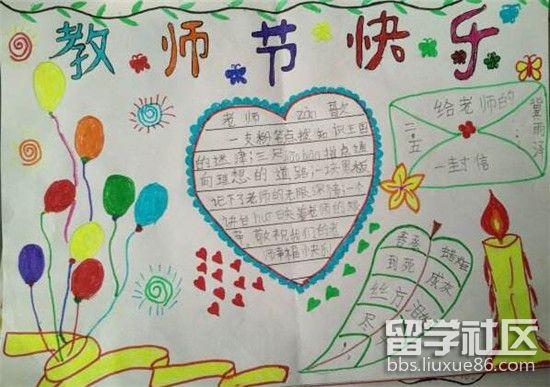 教师节快乐
老师 zàn 歌
一支粉笔点拨知识王国
的迷津;三尺jiàobān指点通
向理想的道路;一块黑板
记下了老师的无限深情;一个
讲台
着老师的
敬祝我们的老
师幸福!快乐!
给老师的
一封信
二·五
冀雨泽
春蚕
到死
丝方
尽
蜡炬
成灰
泪
留学社区
bbs.liuxue86.com